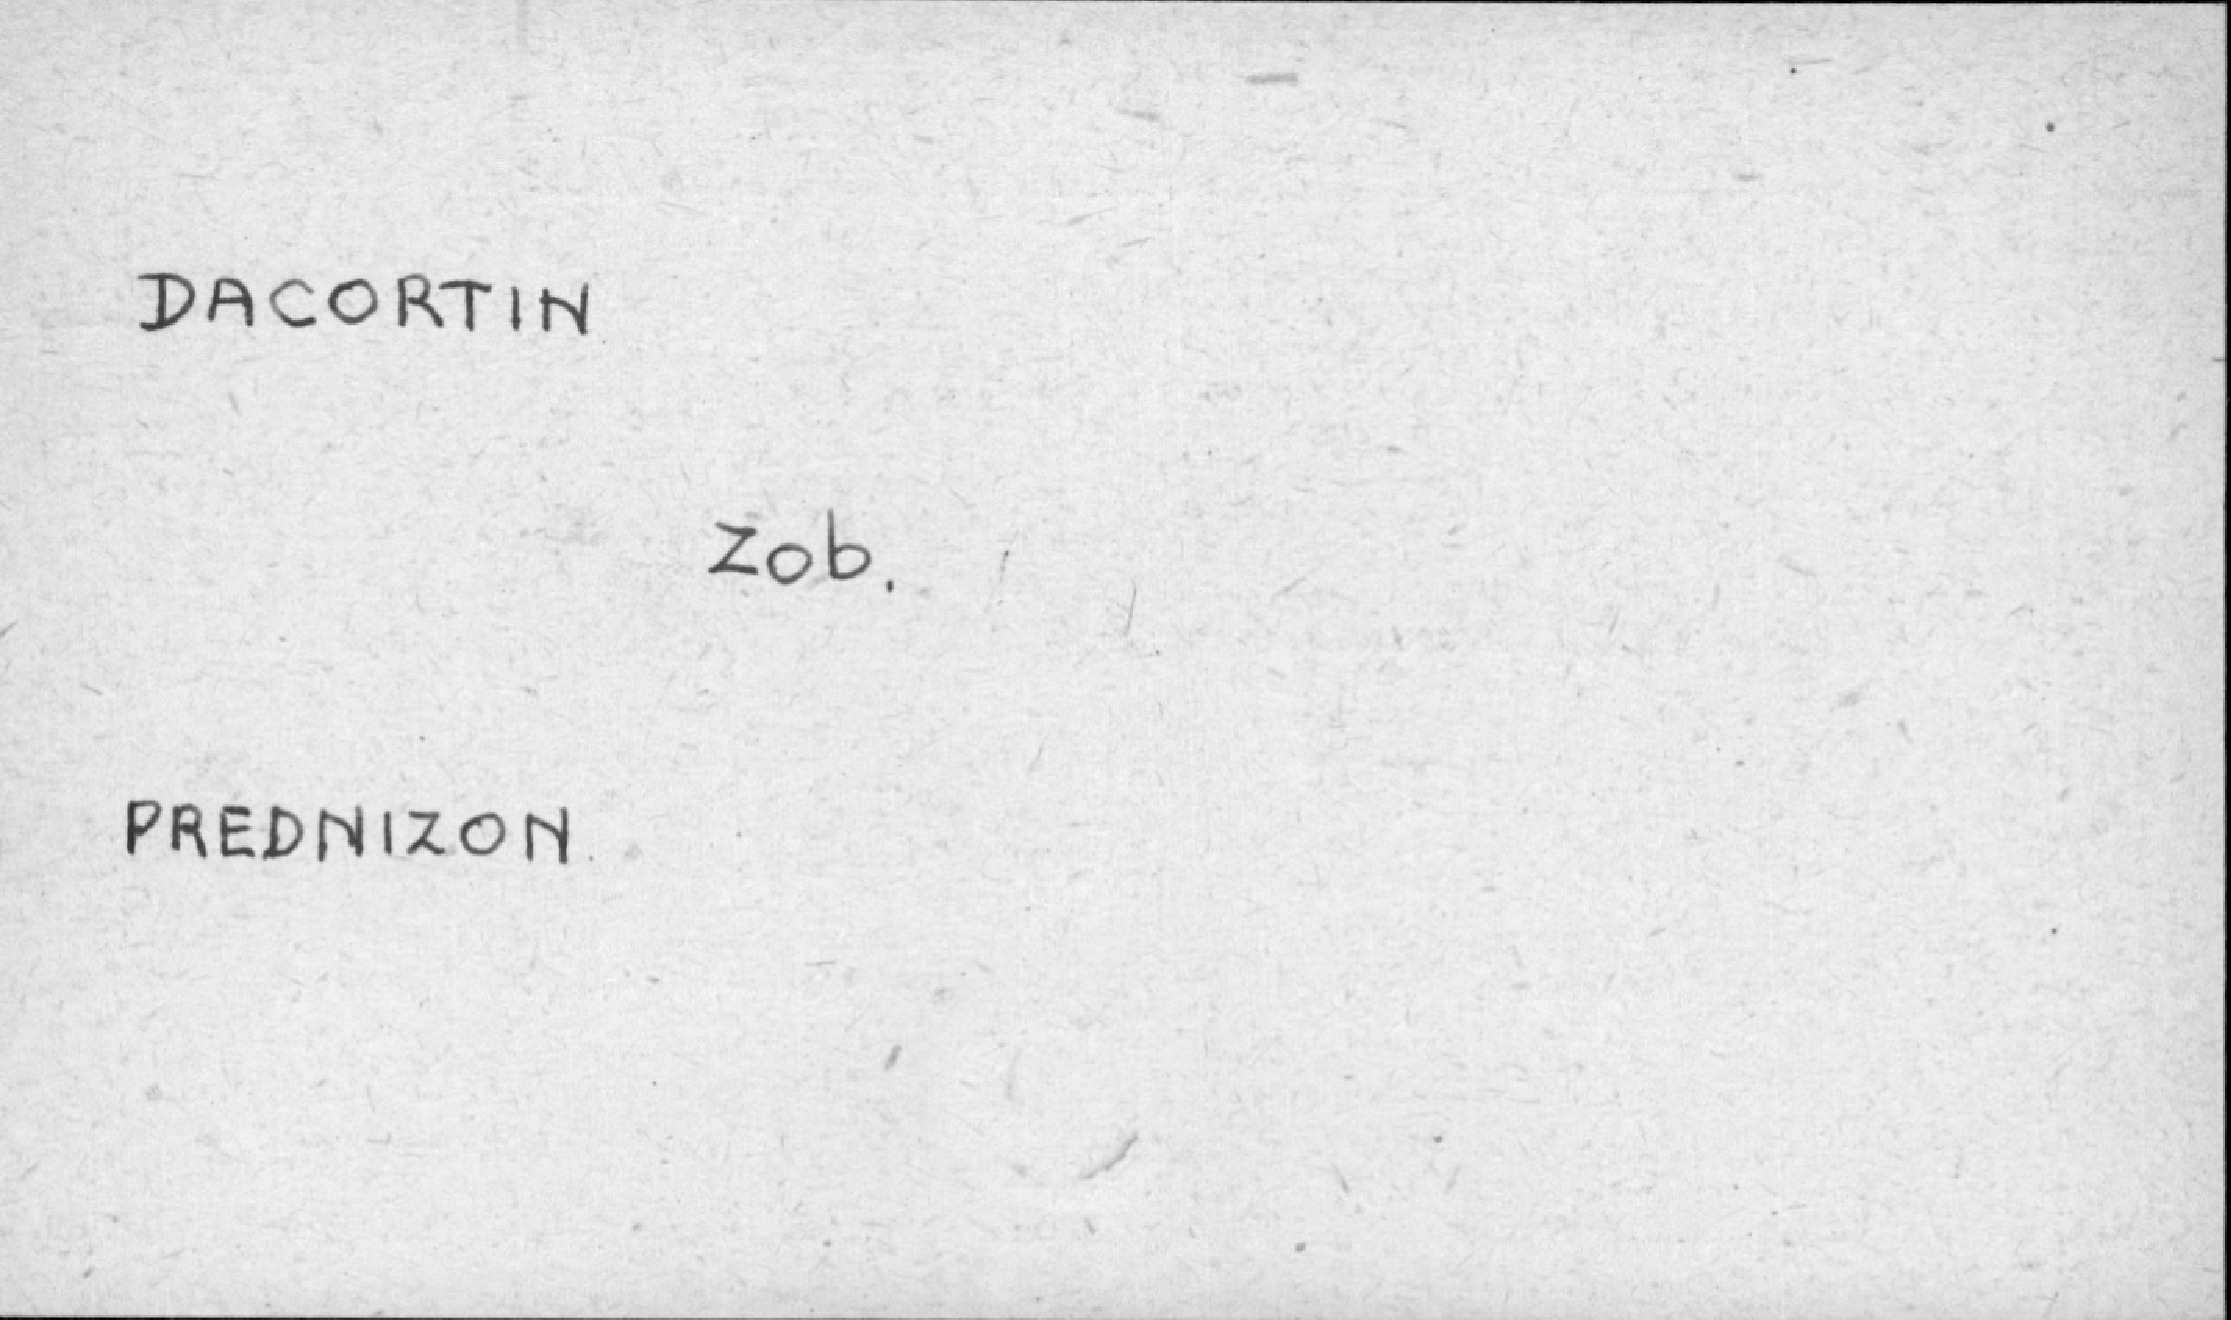 DACORTIN
Zob.
PREDNIZON